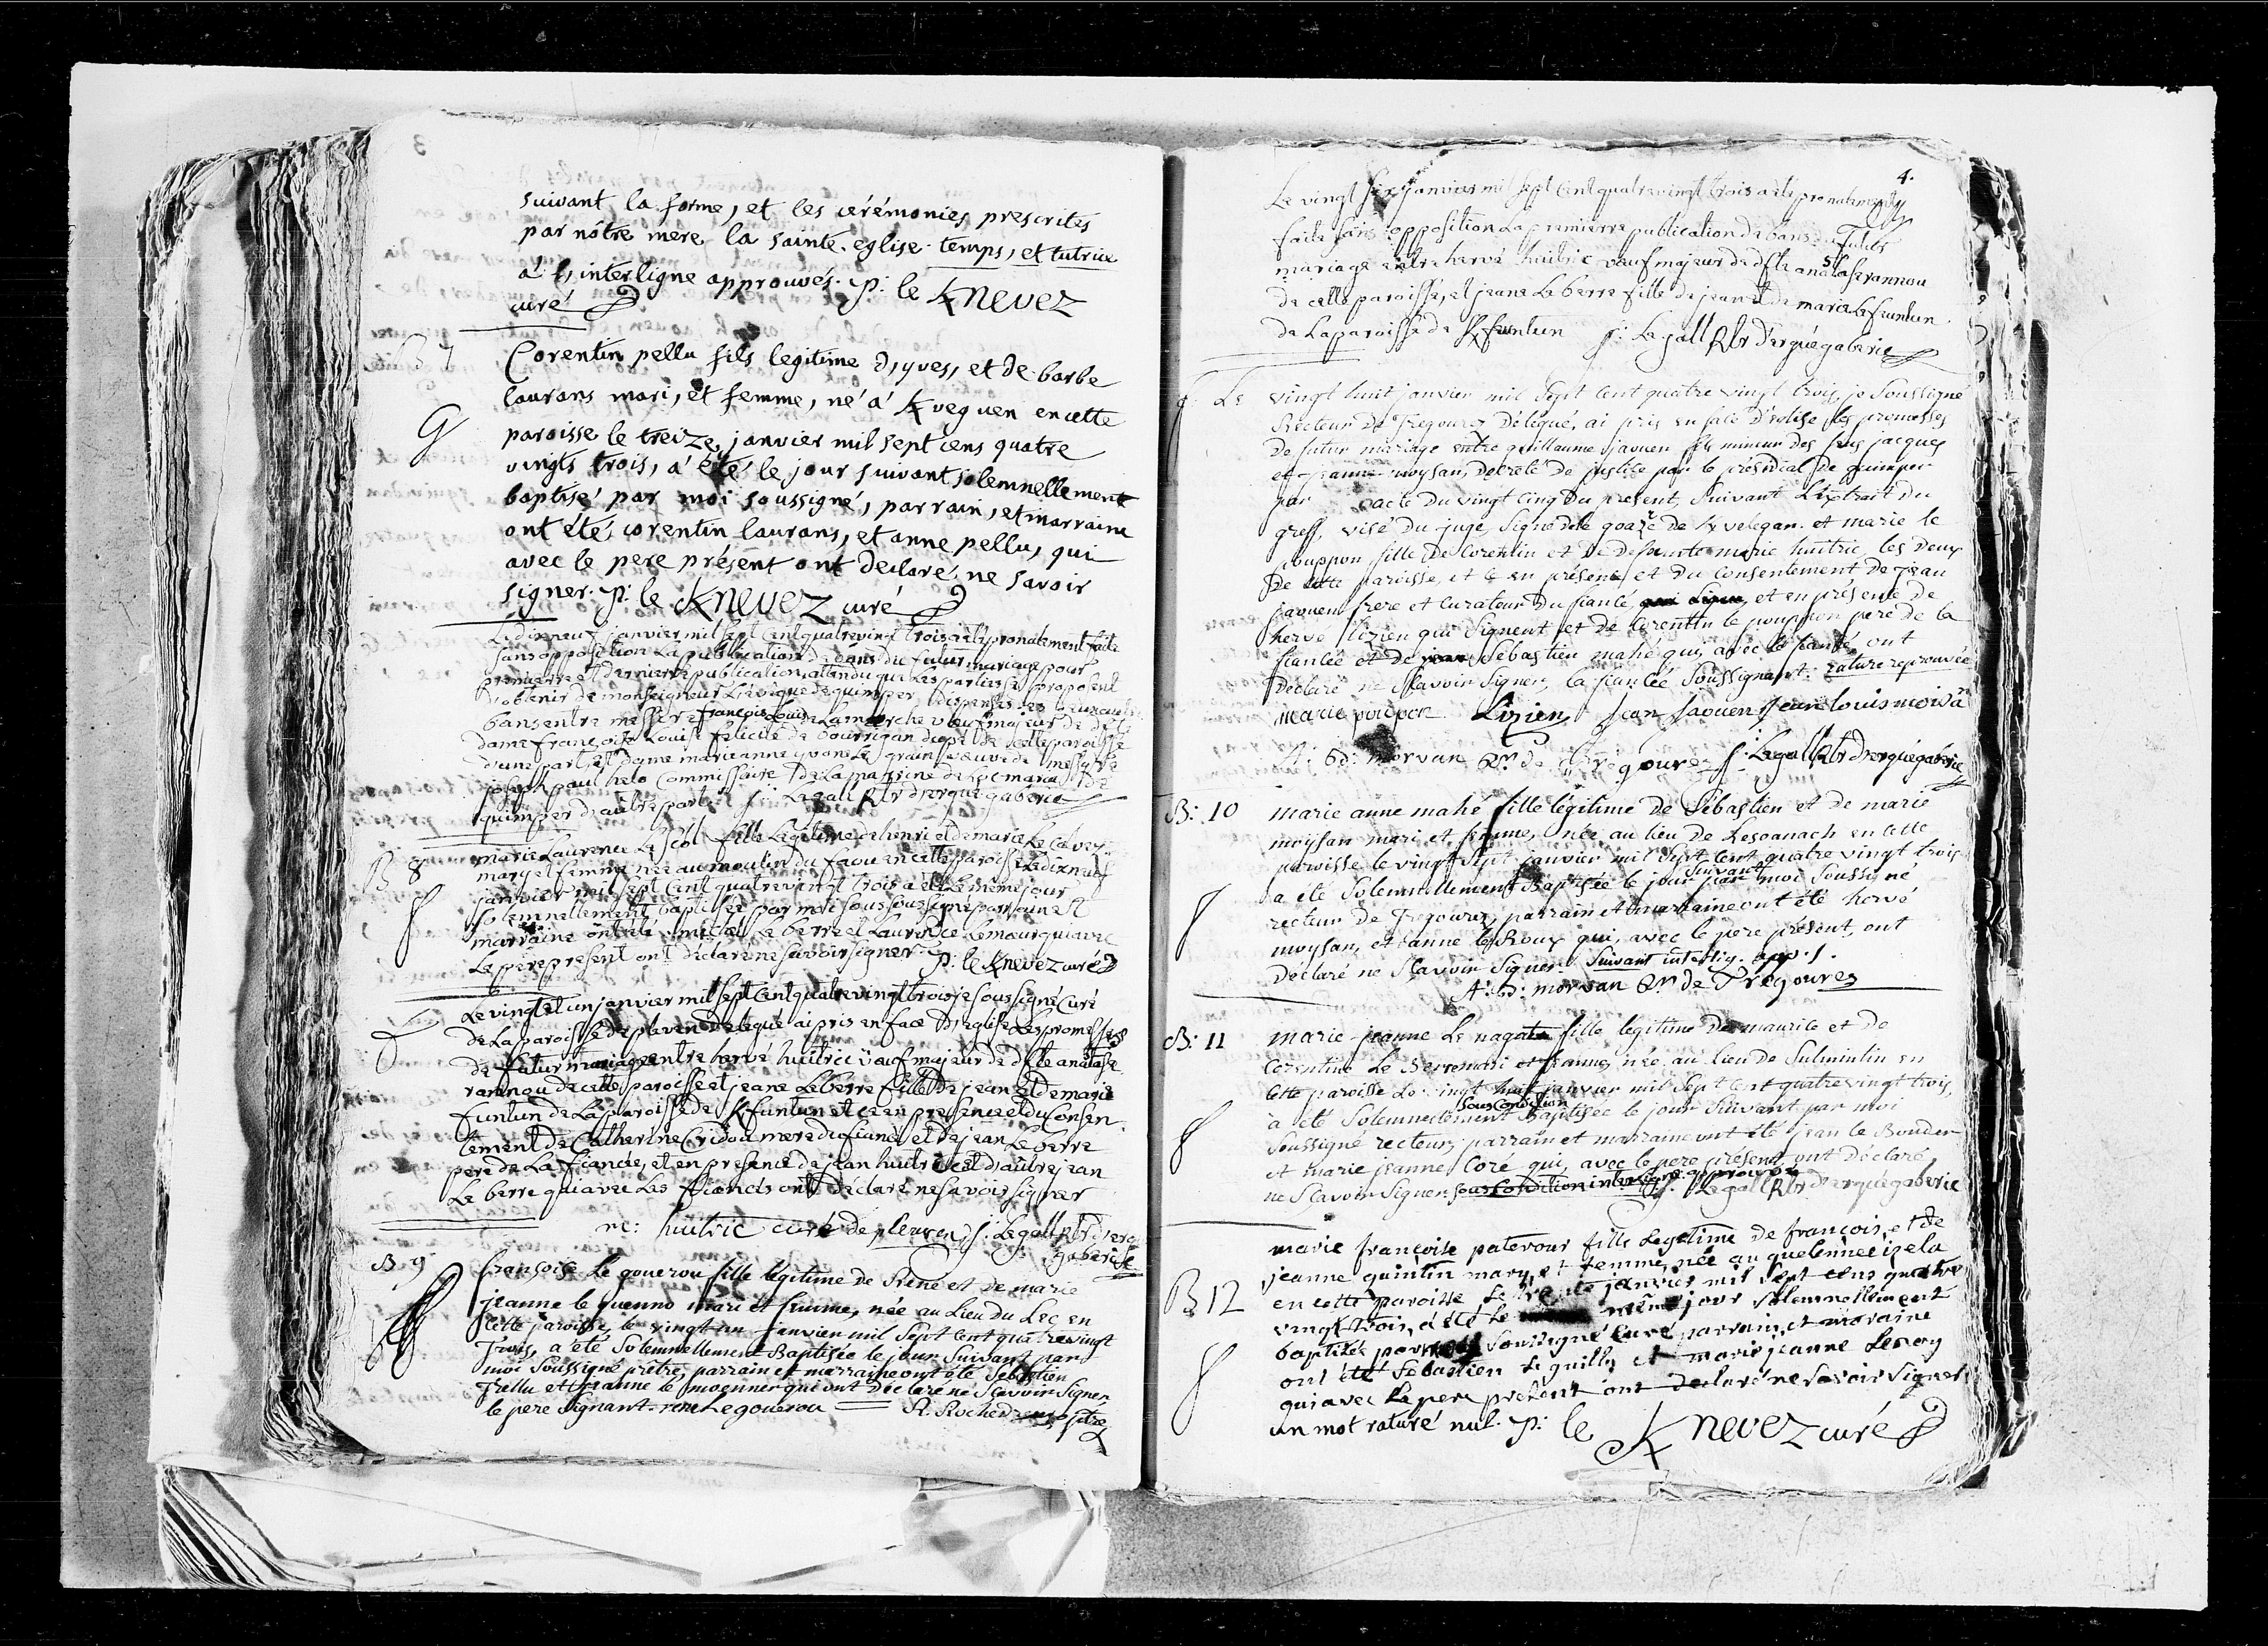 3
suivant la forme, et les cérémonies prescrites
par nôtre mere la sainte eglise. temps, et tutrice
á l'interligne approuvés. p: le Knevez
curé
B 7
G
Corentin pellu fils legitime d'yves, et de barbe
laurans mari, et femme, né á Kveguen en cette
paroisse le treize janvier mil sept cens quatre
vingts trois, á été le jour suivant solemnellement
baptisé par moi soussigné, parrain, et marraine
ont été corentin laurans, et anne pellu, qui
avec le pere présent ont declaré ne savoir
signer. p: le Knevez curé
Le dixneuf janvier mil sept cent quatrevingt trois a été pronalement faite
sans opposition La publication de bans du futur mariage pour
premierre et dernierre publication, attendu que Les parties se proposent
d'obtenir de monseigneur L'évêque de quimper dispenses des
bans entre messire françois Louis Lamarche veuf majeur de
dame françoise Louise felicité de bourrigan de cette paroisse
d'une part, et dame marie anne yvone Le grain veuve de messire
joseph paul helo Commissaire de La marine de Locmaria de
quimper d'autre part. j: Legall Rtr d'ergué gaberic
B 8
marie Laurence Le scol fille Legitime de henri et de marie Le Calvez
mary et femme née au moulin du faou en cette paroisse Le dixneuf
janvier mil sept cent quatrevingt trois a été Le même jour
solemnellement baptisée par moi sous soussigné parrain et
marraine ont été michel Le berre et Laurence Lemeur qui avec
Le pere present ont déclaré ne savoir signer. p: le Knevez curé
Le vingt et un janvier mil sept cent quatrevingt trois je soussigné Curé
de La paroisse de pleuven delegué ai pris en face d'eglise Les promesses
de futur mariage entre hervé huitric veuf majeur de dfte anastase
rannou de cette paroisse et jeane Leberre fille de jean et de marie
funtun de La paroisse de Kfuntun et ce en presence et du Consen
tement de Catherine Cridou mere du fiancé et de jean Leberre
pere de La fiancée, et en presence de jean huitric et d'autre jean
Le berre qui avec Les fiancés ont déclaré ne savoir signer
ne: huitric curé de pleuven j: Legall Rtr d'ergué
gaberic
B 9
françoise Le gouerou fille legitime de René et de marie
jeanne le guenno mari et femme, née au Lieu du Lec en
cette paroisse, le vingt un janvier mil sept cent quatrevingt
Trois, a été solemnellement Baptisée le jour suivant par
moi soussigné prêtre, parrain et marraine ont été Sebastien
Trellu et jeanne le moenner qui ont déclaré ne sçavoir signer
le pere signant. rene Le gouerou R. Rochedreux ptre
4.
Le vingt six janvier mil sept cent quatrevingt trois a été pronalement
faite sans opposition La premierre publication de bans du futur
mariage entre hervé huitric veuf majeur de dfte anastase rannou
de cette paroisse, et jeane Le berre fille de jean et de marie Le funtun
de La paroisse de Kfuntun j: Legall Rtr d'ergué gaberic
f: Le vingt huit janvier mil sept cent quatre vingt trois, je soussigné
Recteur de Tregourez délégué, ai pris en face d'église les promesses
de futur mariage entre guillaume jaouen fils mineur des feus jacques
et jeanne moysan, décrété de justice par le présidial de quimper
par acte du vingt cinq du present, suivant L'extrait du
greff, visé du juge, signé dele goazre de Kvelegan. et marie le
pouppon fille de Corentin et de defuncte marie huitric, les deux
De cette paroisse, et ce en présence et du consentement de jean
jaouen frere et curateur du fiancé et en présence de
hervé Lizien qui signent et de Corentin le pouppon pere de la
fiancée et de Sebastien mahé qui avec le fiancé, ont
Déclaré ne sçavoir signer, la fiancée soussignant: rature reprouvée
marie poupon Lizien Jean Jaouen Jean louis moisan
A: G: morvan Rr. de Trégourez j: Legall Rtr d'ergué gaberic
B: 10
marie anne mahé fille légitime de Sébastien et de marie
moysan mari et femme, née au lieu de Lesoanach en cette
paroisse le vingt sept janvier mil sept cent quatre vingt trois
a été solemnellement Baptisée le jour suivant par moi soussigné
recteur de Tregourez, parrain et marraine ont été hervé
moysan, et anne le Roux qui, avec le pere présent, ont
Déclaré ne sçavoir signer. Suivant interlig. app.
A: G: morvan Rr. de Trégourez
B: 11
marie jeanne Le naga fille legitime de maurice et de
Corentine Le Berre mari et femme, née au lieu de Sulvintin en
cette paroisse Le vingt huit janvier mil sept cent quatre vingt trois,
à été solemnellement sous condition Baptisée le jour suivant par moi
soussigné recteur, parrain et marraine ont été jean le Bouder
et marie jeanne Coré qui, avec le pere présent, ont déclaré
ne sçavoir signer sous condition interligne approuvé j: Legall Rtr d'ergué gaberic
B 12
marie françoise paterour fille Legitime de françois, et de
jeanne quintin mary, et femme, née au quelennec izela
en cette paroisse le trente janvier mil sept cens quatre
vingt trois, a été le même jour solemnellement
baptisée par moi soussigné curé parrain, et marraine
ont été Sebastien Le quilly et marie jeanne Leroy
qui avec le pere present ont declaré ne savoir signer
un mot raturé nul. p: le Knevez curé